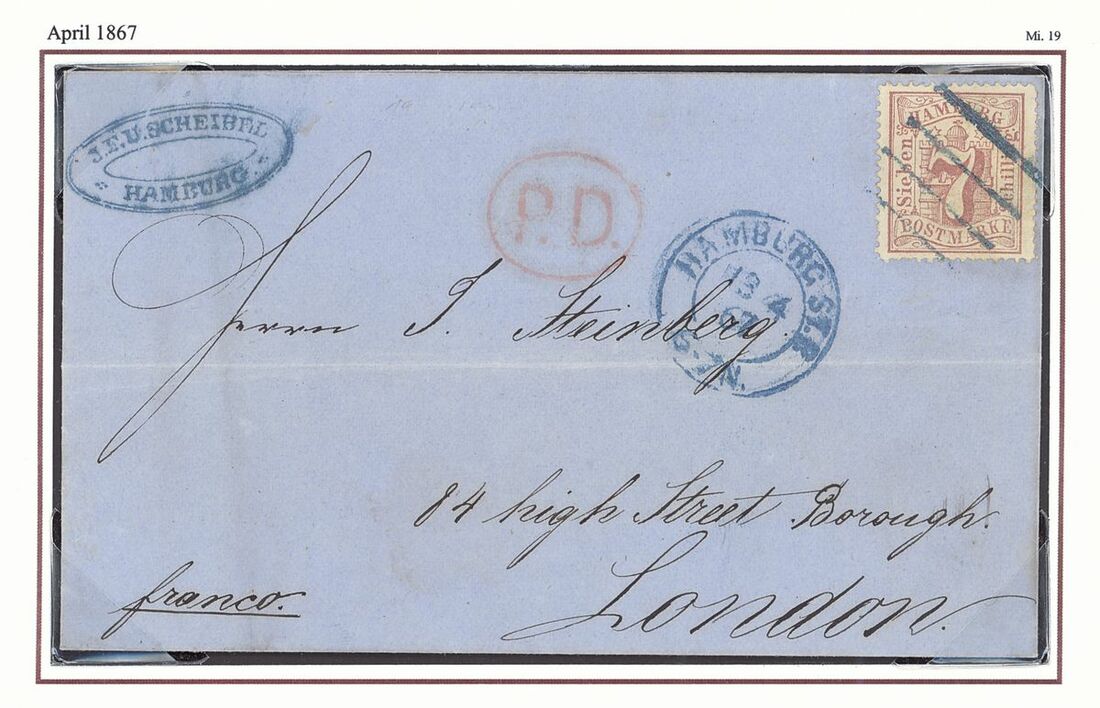 April 1867
Mi. 19
J.E.U. SCHEIBEL
HAMBURG
P.D.
HAMBURG ST.P.
13 4
67
5-6 N.
HAMBURG
Sieben
7
Schilling
POSTMARKE
Herrn J. Steinberg.
84 high Street Borough.
London.
franco.